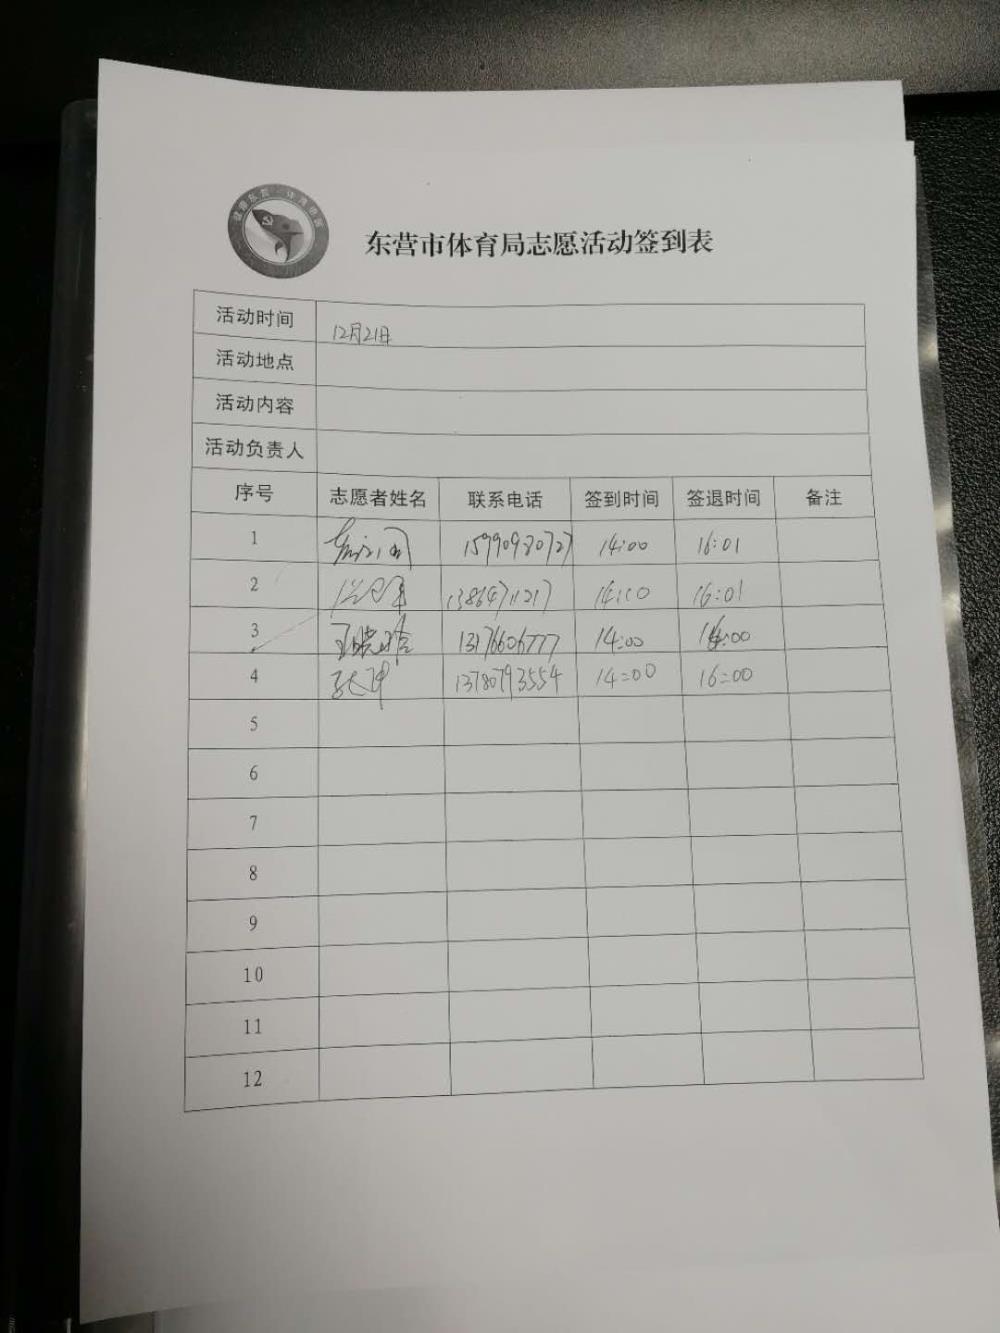 东营市体育局志愿活动签到表
活动时间 12月21日
活动地点
活动内容
活动负责人
序号 志愿者姓名 联系电话 签到时间 签退时间 备注
1 15990980727 14:00 16:01
2 13864711217 14:10 16:01
3 王晓晗 13176606777 14:00 16:00
4 张冲 13780793554 14:00 16:00
5
6
7
8
9
10
11
12